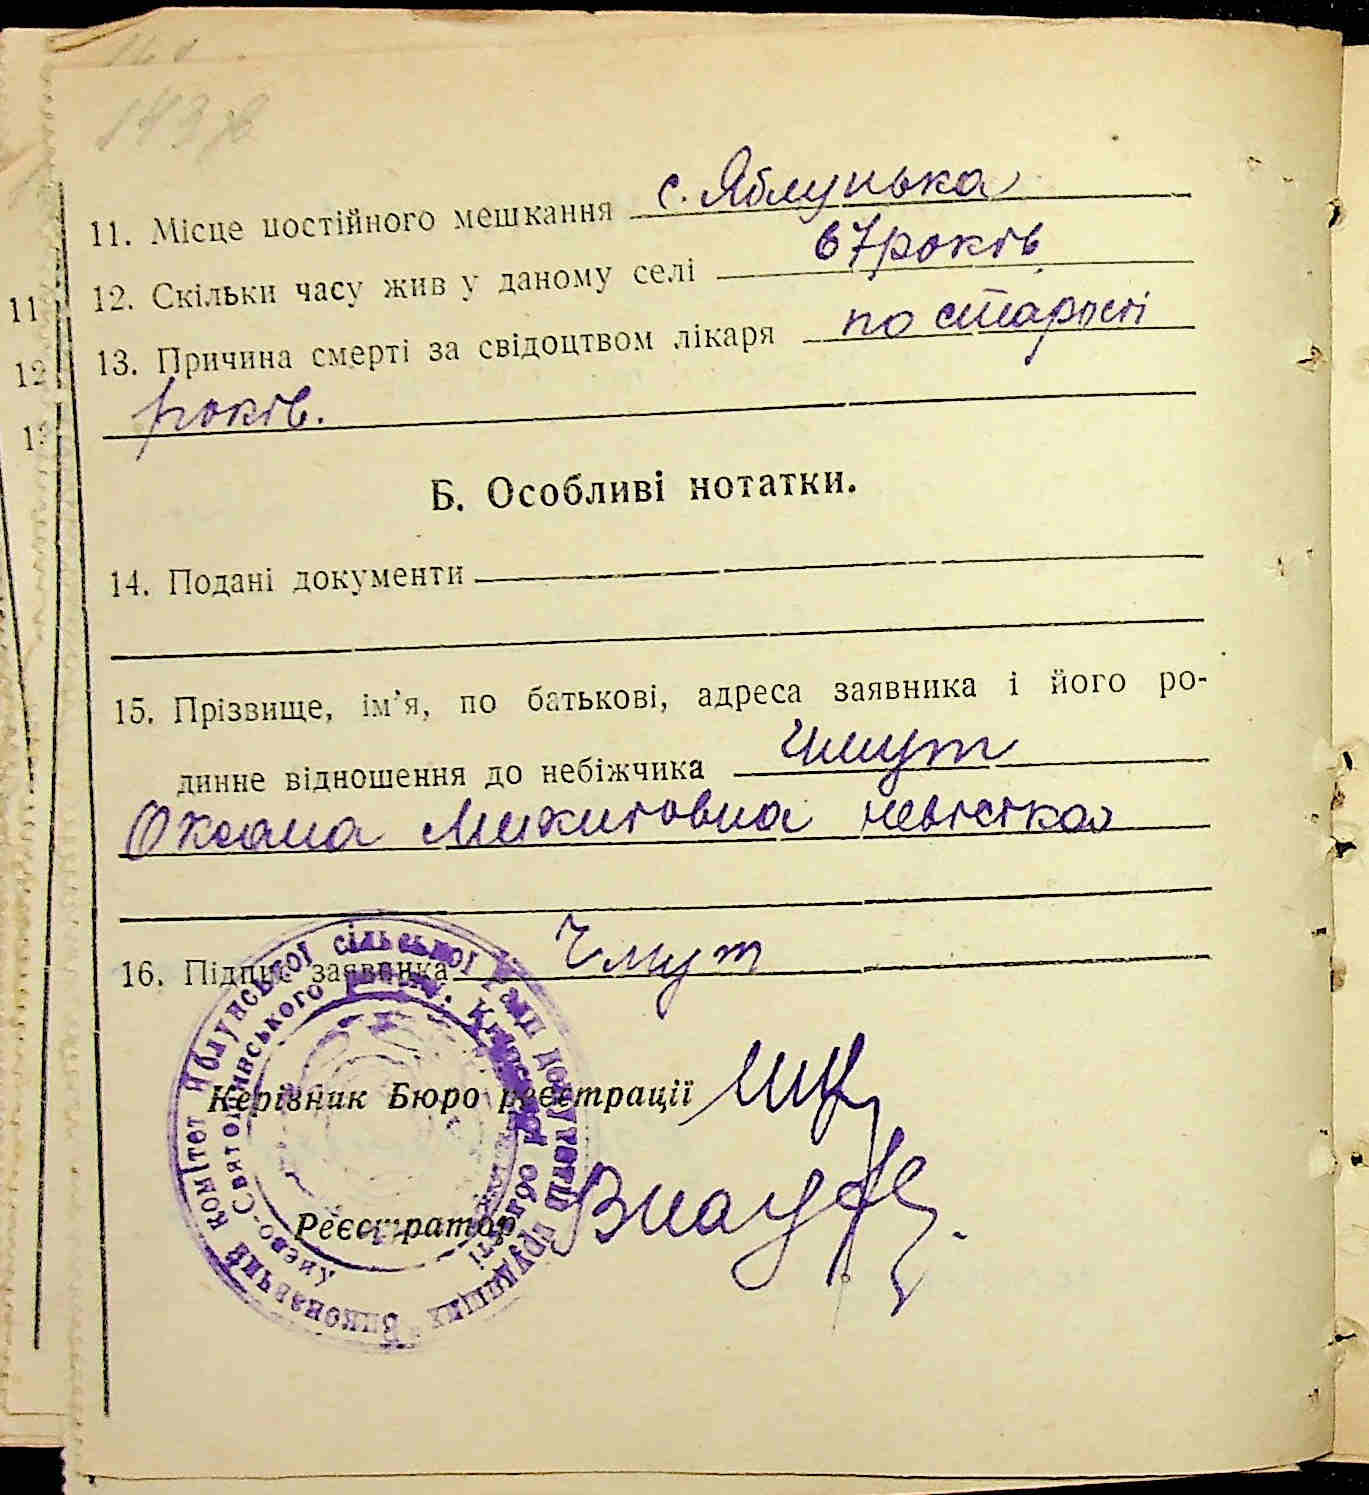 143 в
11. Місце постійного мешкання с. Яблунька
12. Скільки часу жив у даному селі 67 років
13. Причина смерті за свідоцтвом лікаря по старості
років.
Б. Особливі нотатки.
14. Подані документи
15. Прізвище, ім’я, по батькові, адреса заявника і його ро-
динне відношення до небіжчика Чмут
Оксана Микитовна невістка
16. Підпис заявника Чмут
Керівник Бюро реєстрації
Реєстратор
Виконавчий комітет Яблунської сільської Ради депутатів трудящих
Києво-Святошинського району, Київської області
11
12
13